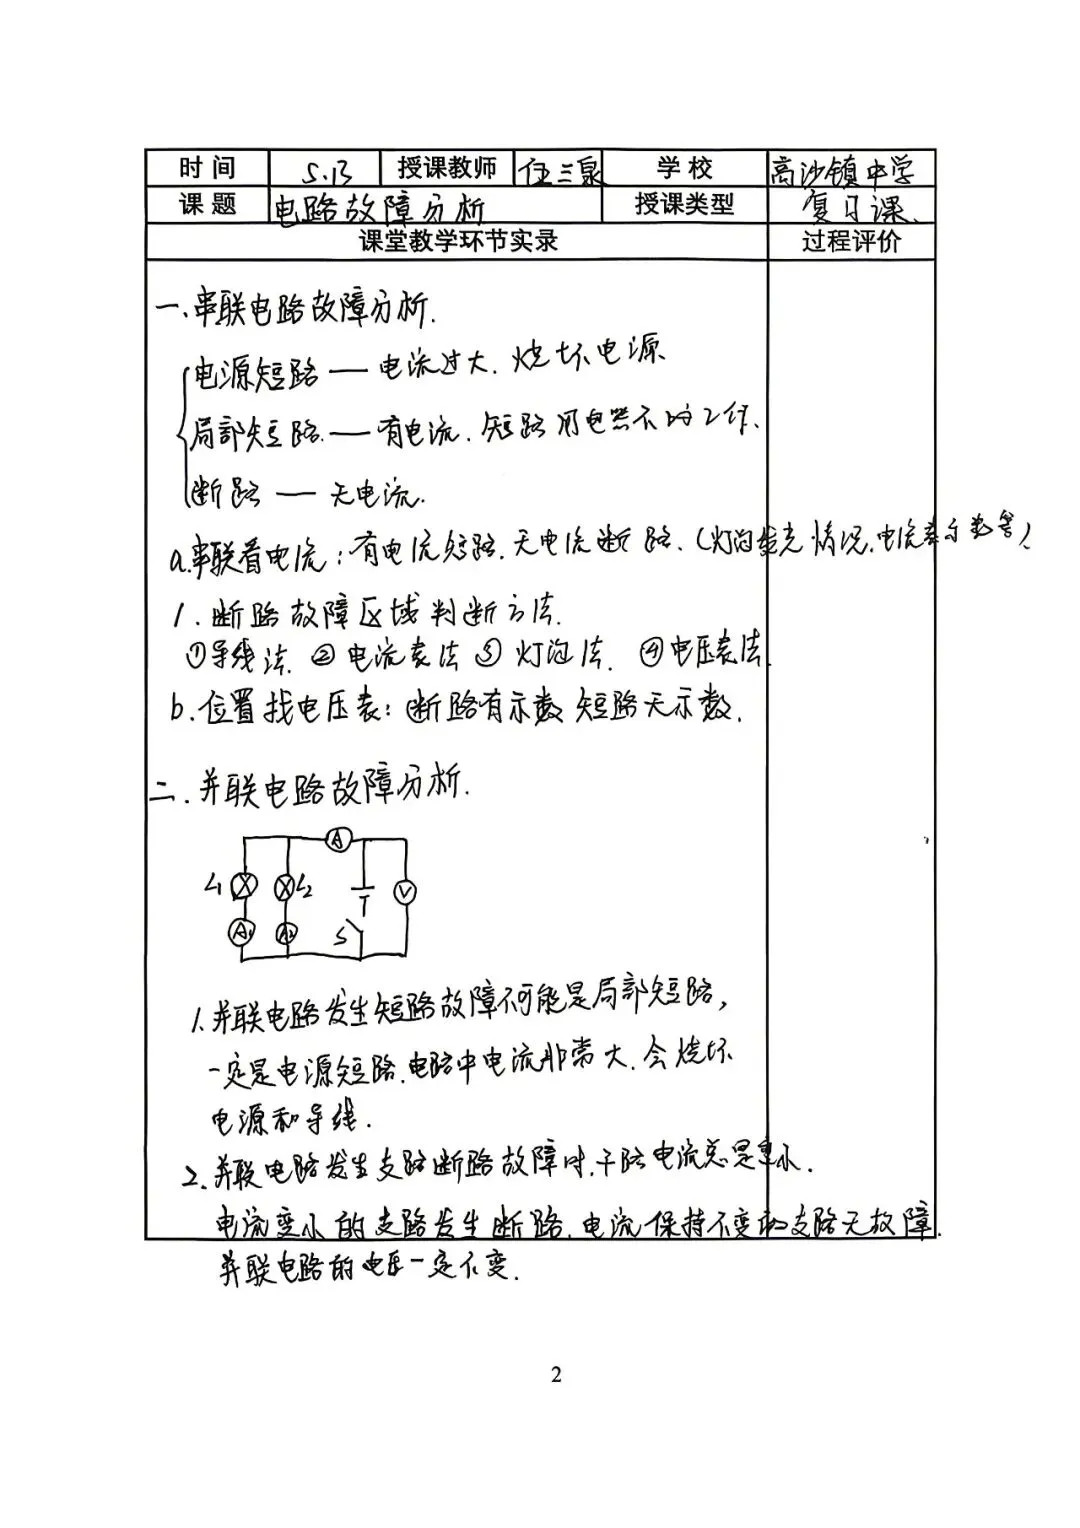 时间 5.13 授课教师 任三泉 学校 高沙镇中学
课题 电路故障分析 授课类型 复习课.
课堂教学环节实录 过程评价
一、串联电路故障分析.
电源短路 — 电流过大. 烧坏电源
局部短路. — 有电流. 短路用电器不能工作.
断路 — 无电流.
a.串联看电流:有电流短路.无电流断路.(灯泡发光情况.电流表示数等)
1.断路故障区域判断方法.
①导线法. ②电流表法 ③灯泡法. ④电压表法
b.位置找电压表:断路有示数 短路无示数.
二.并联电路故障分析.
A
L1 L2 V
A1 A2 S
1.并联电路发生短路故障不可能是局部短路,
一定是电源短路.电路中电流非常大.会烧坏
电源和导线.
2.并联电路发生支路断路故障时.干路电流总是变小.
电流变小的支路发生断路.电流保持不变的支路无故障.
并联电路的电压一定不变.
2